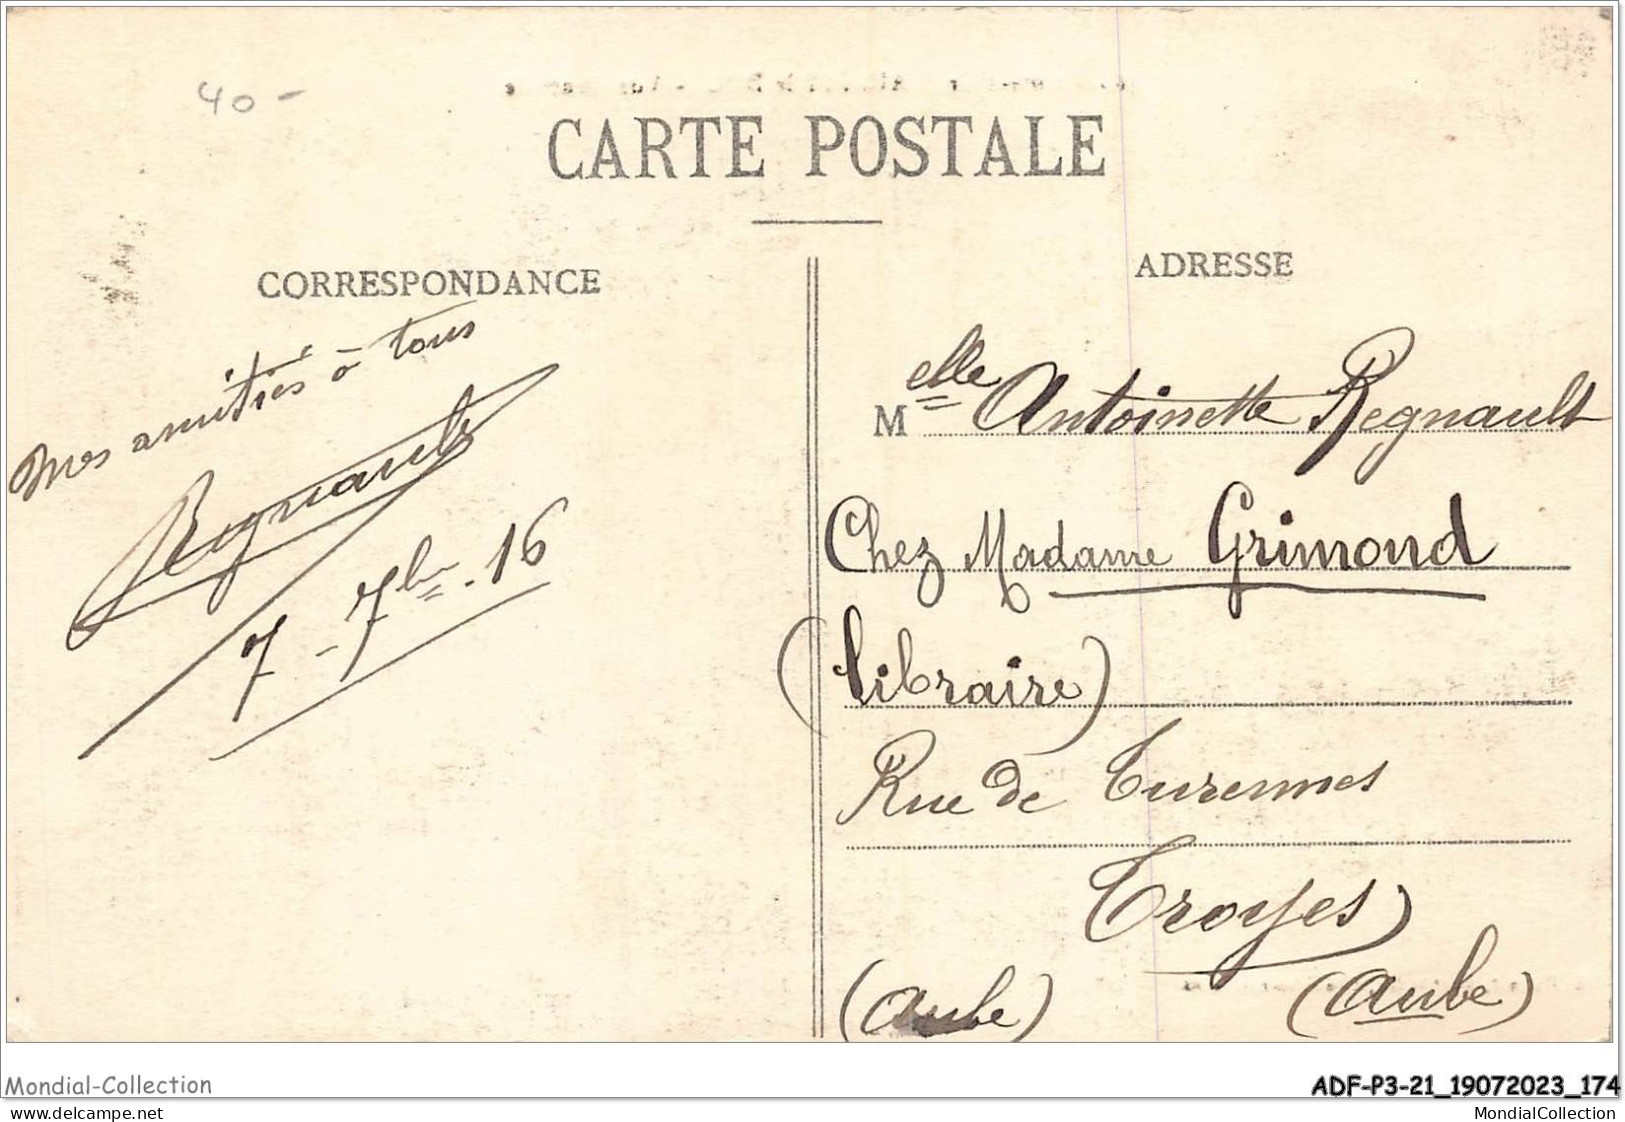 40-
CARTE POSTALE
CORRESPONDANCE
Mes amitiés à tous
Regnault
7-7bre-16
ADRESSE
Melle Antoinette Regnault
Chez Madame Grimond
(libraire)
Rue de Turennes
Troyes
(Aube)
(Aube)
Mondial-Collection
ADF-P3-21_19072023_174
www.delcampe.net
MondialCollection